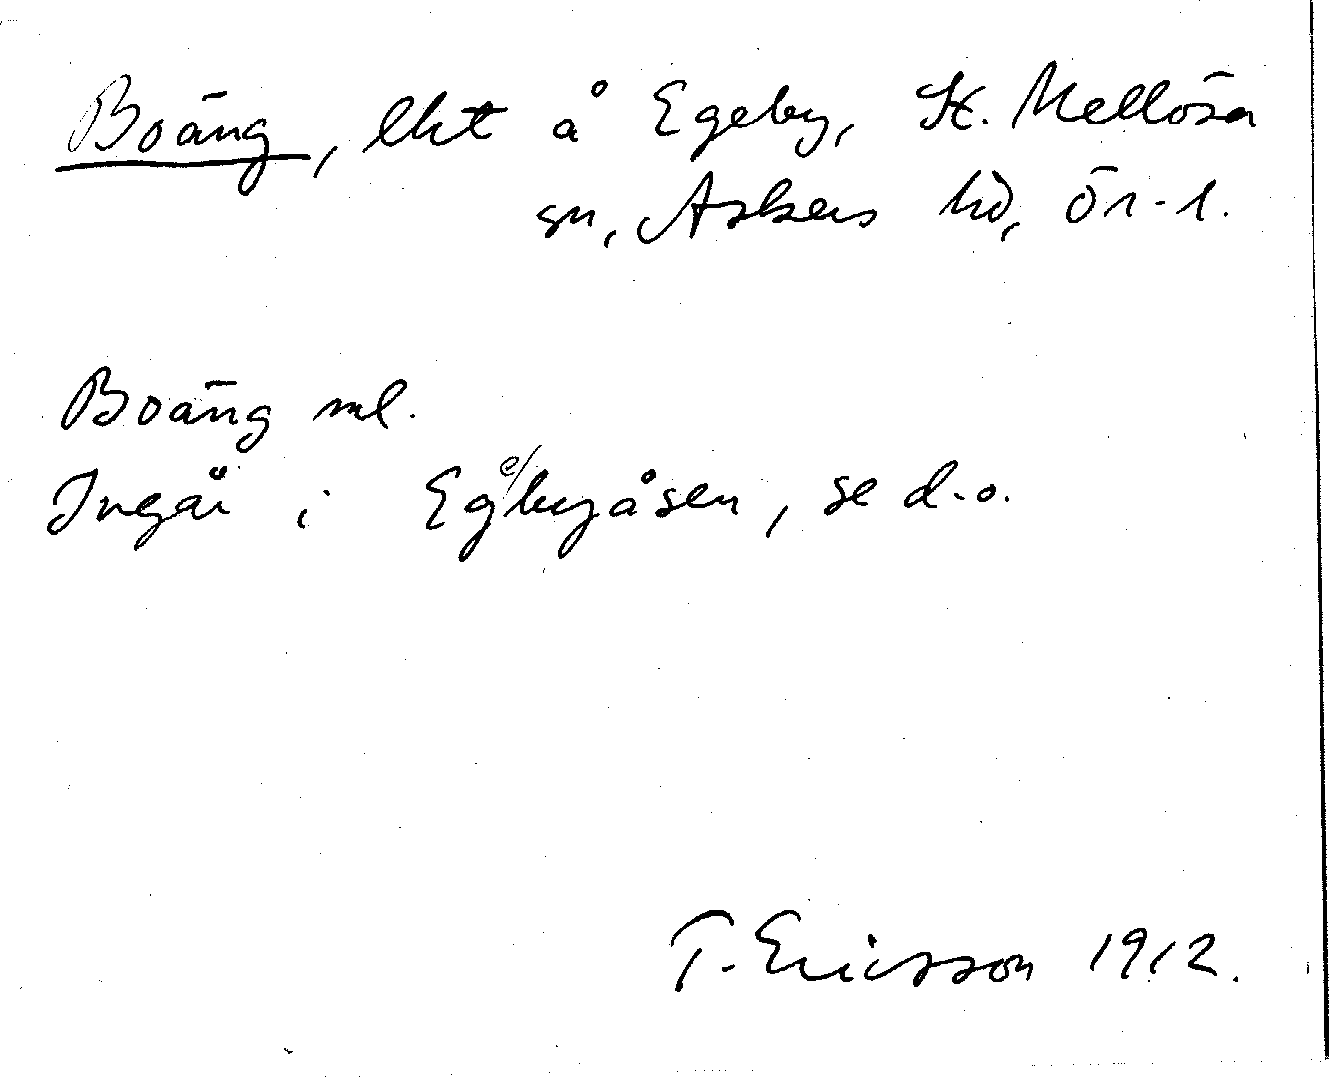 Boäng, lht å Egeby, St. Mellösa
sn, Askers hd, Ör-l.
Boäng ml.
Ingår i Egebyåsen, se d.o.
T. Ericsson 1912.